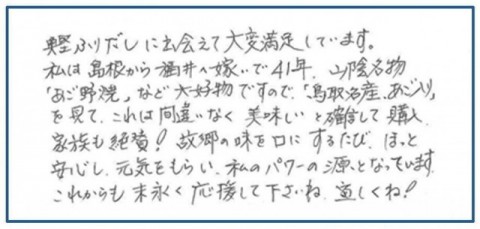 奥深いふりだしに出会えて大変満足しています。
私は島根から福井へ嫁いで41年、山陰名物
「あご野焼」など大好物ですので、「鳥取名産、あご入り」
を見て、これは間違いなく美味しいと確信して購入
家族も絶賛！故郷の味を口にするたび、ほっと
安心し、元気をもらい、私のパワーの源となっています。
これからも末永く応援して下さいね、宜しくね！